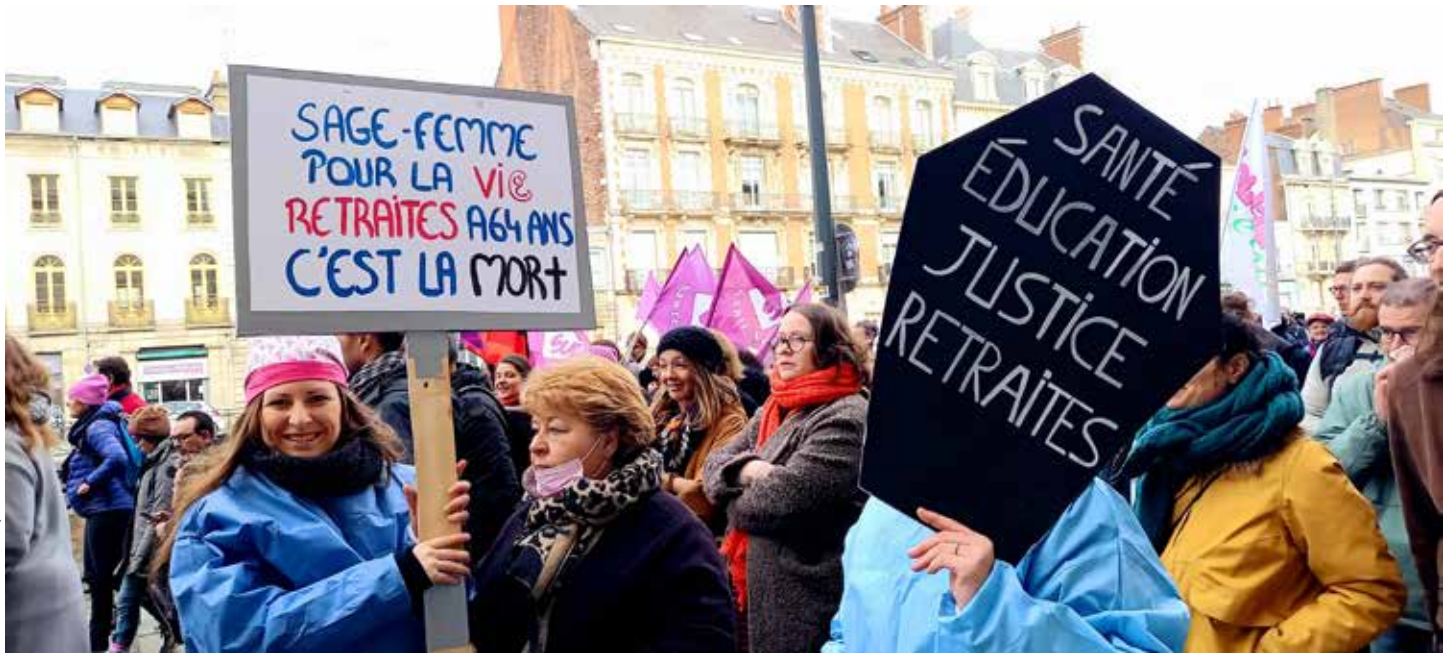 SAGE-FEMME
POUR LA ViE
RETRAiTES A64 ANS
C'EST LA MORt
SANTÉ
ÉDUCATiON
JUSTiCE
RETRAiTES